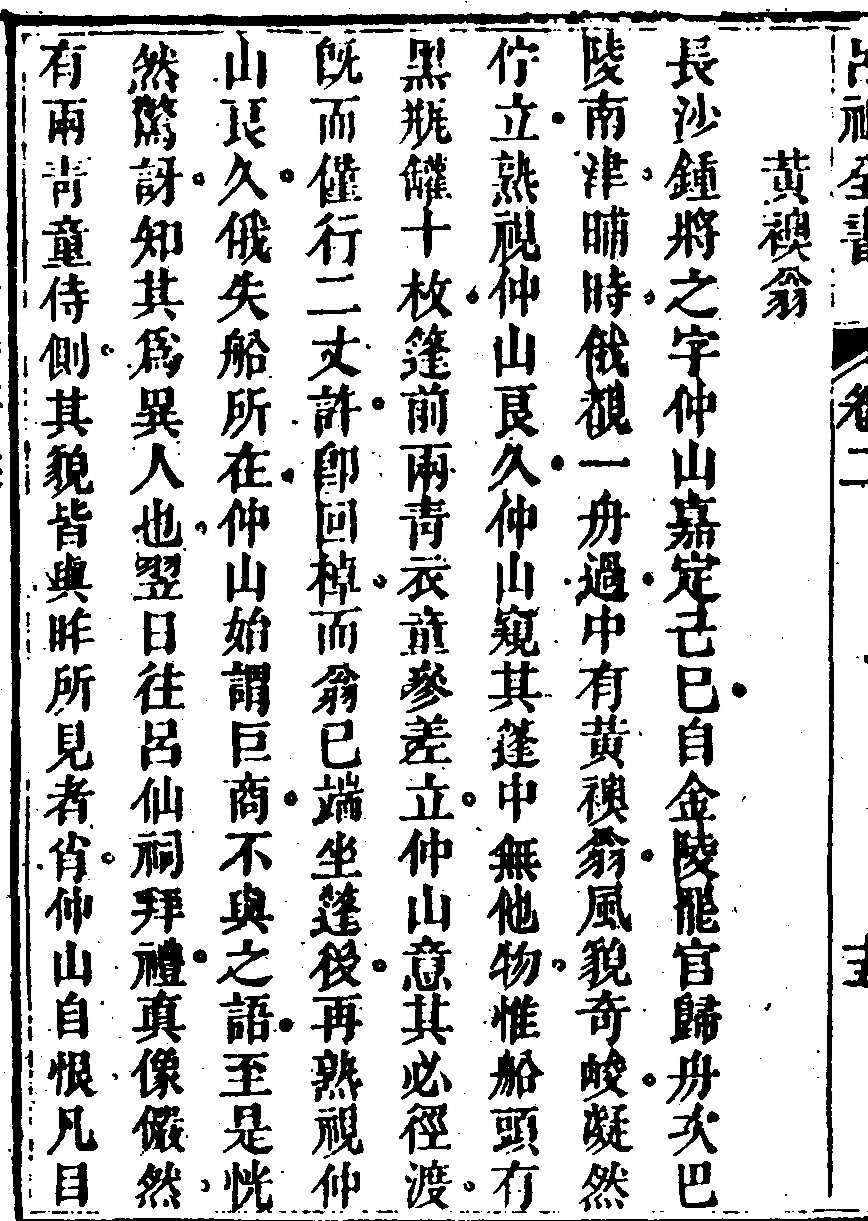 呂祖全書 卷二
黃襖翁
長沙鍾將之字仲山嘉定己巳自金陵罷官歸舟次巴
陵南津晡時俄覩一舟過中有黃襖翁風貌奇峻凝然
佇立熟視仲山良久仲山窺其蓬中無他物惟船頭有
黑瓶罐十枚蓬前兩青衣童參差立仲山意其必徑渡
旣而僅行二丈許卽回棹而翁已端坐蓬後再熟視仲
山良久俄失船所在仲山始謂巨商不與之語至是恍
然驚訝知其爲異人也翌日往呂仙祠拜禮真像儼然
有兩青童侍側其貌皆與昨所見者肖仲山自恨凡目